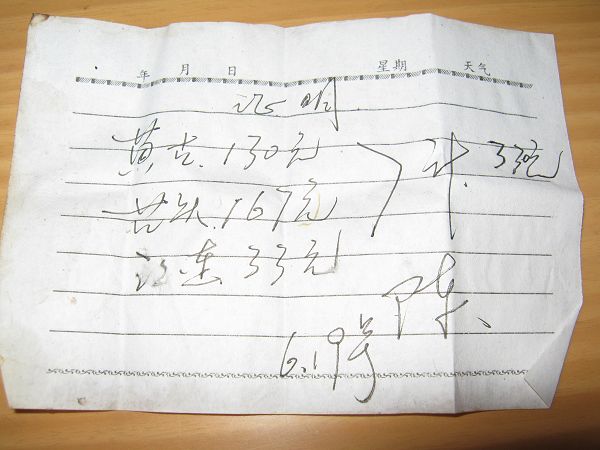 年 月 日 星期 天气
证明
黄 . 130元 计. 330元
. 167元
33元
陈
6.19号